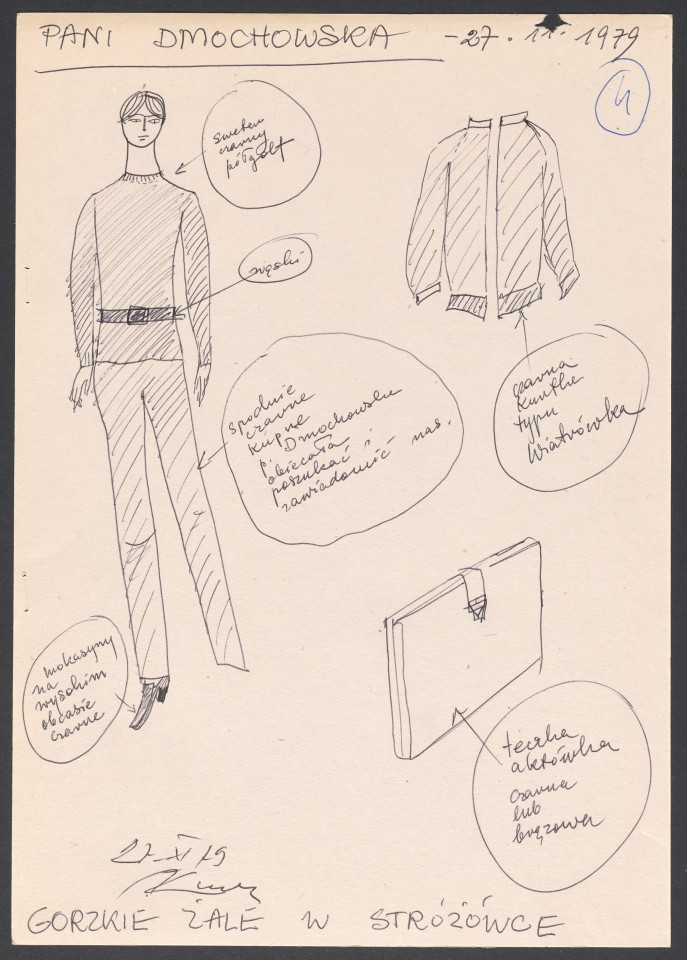 PANI DMOCHOWSKA - 27. 11. 1979
4
sweter
czarny
półgolf
wąski
spodnie
czarne
kupne
p. Dmochowska
obiecała
poszukać i
zawiadomić nas.
czarna
kurtka
typu
Wiatrówka
mokasyny
na
wysokim
obcasie
czarne
teczka
aktówka
czarna
lub
brązowa
27 XI 79
GORZKIE ŻALE W STRÓŻÓWCE